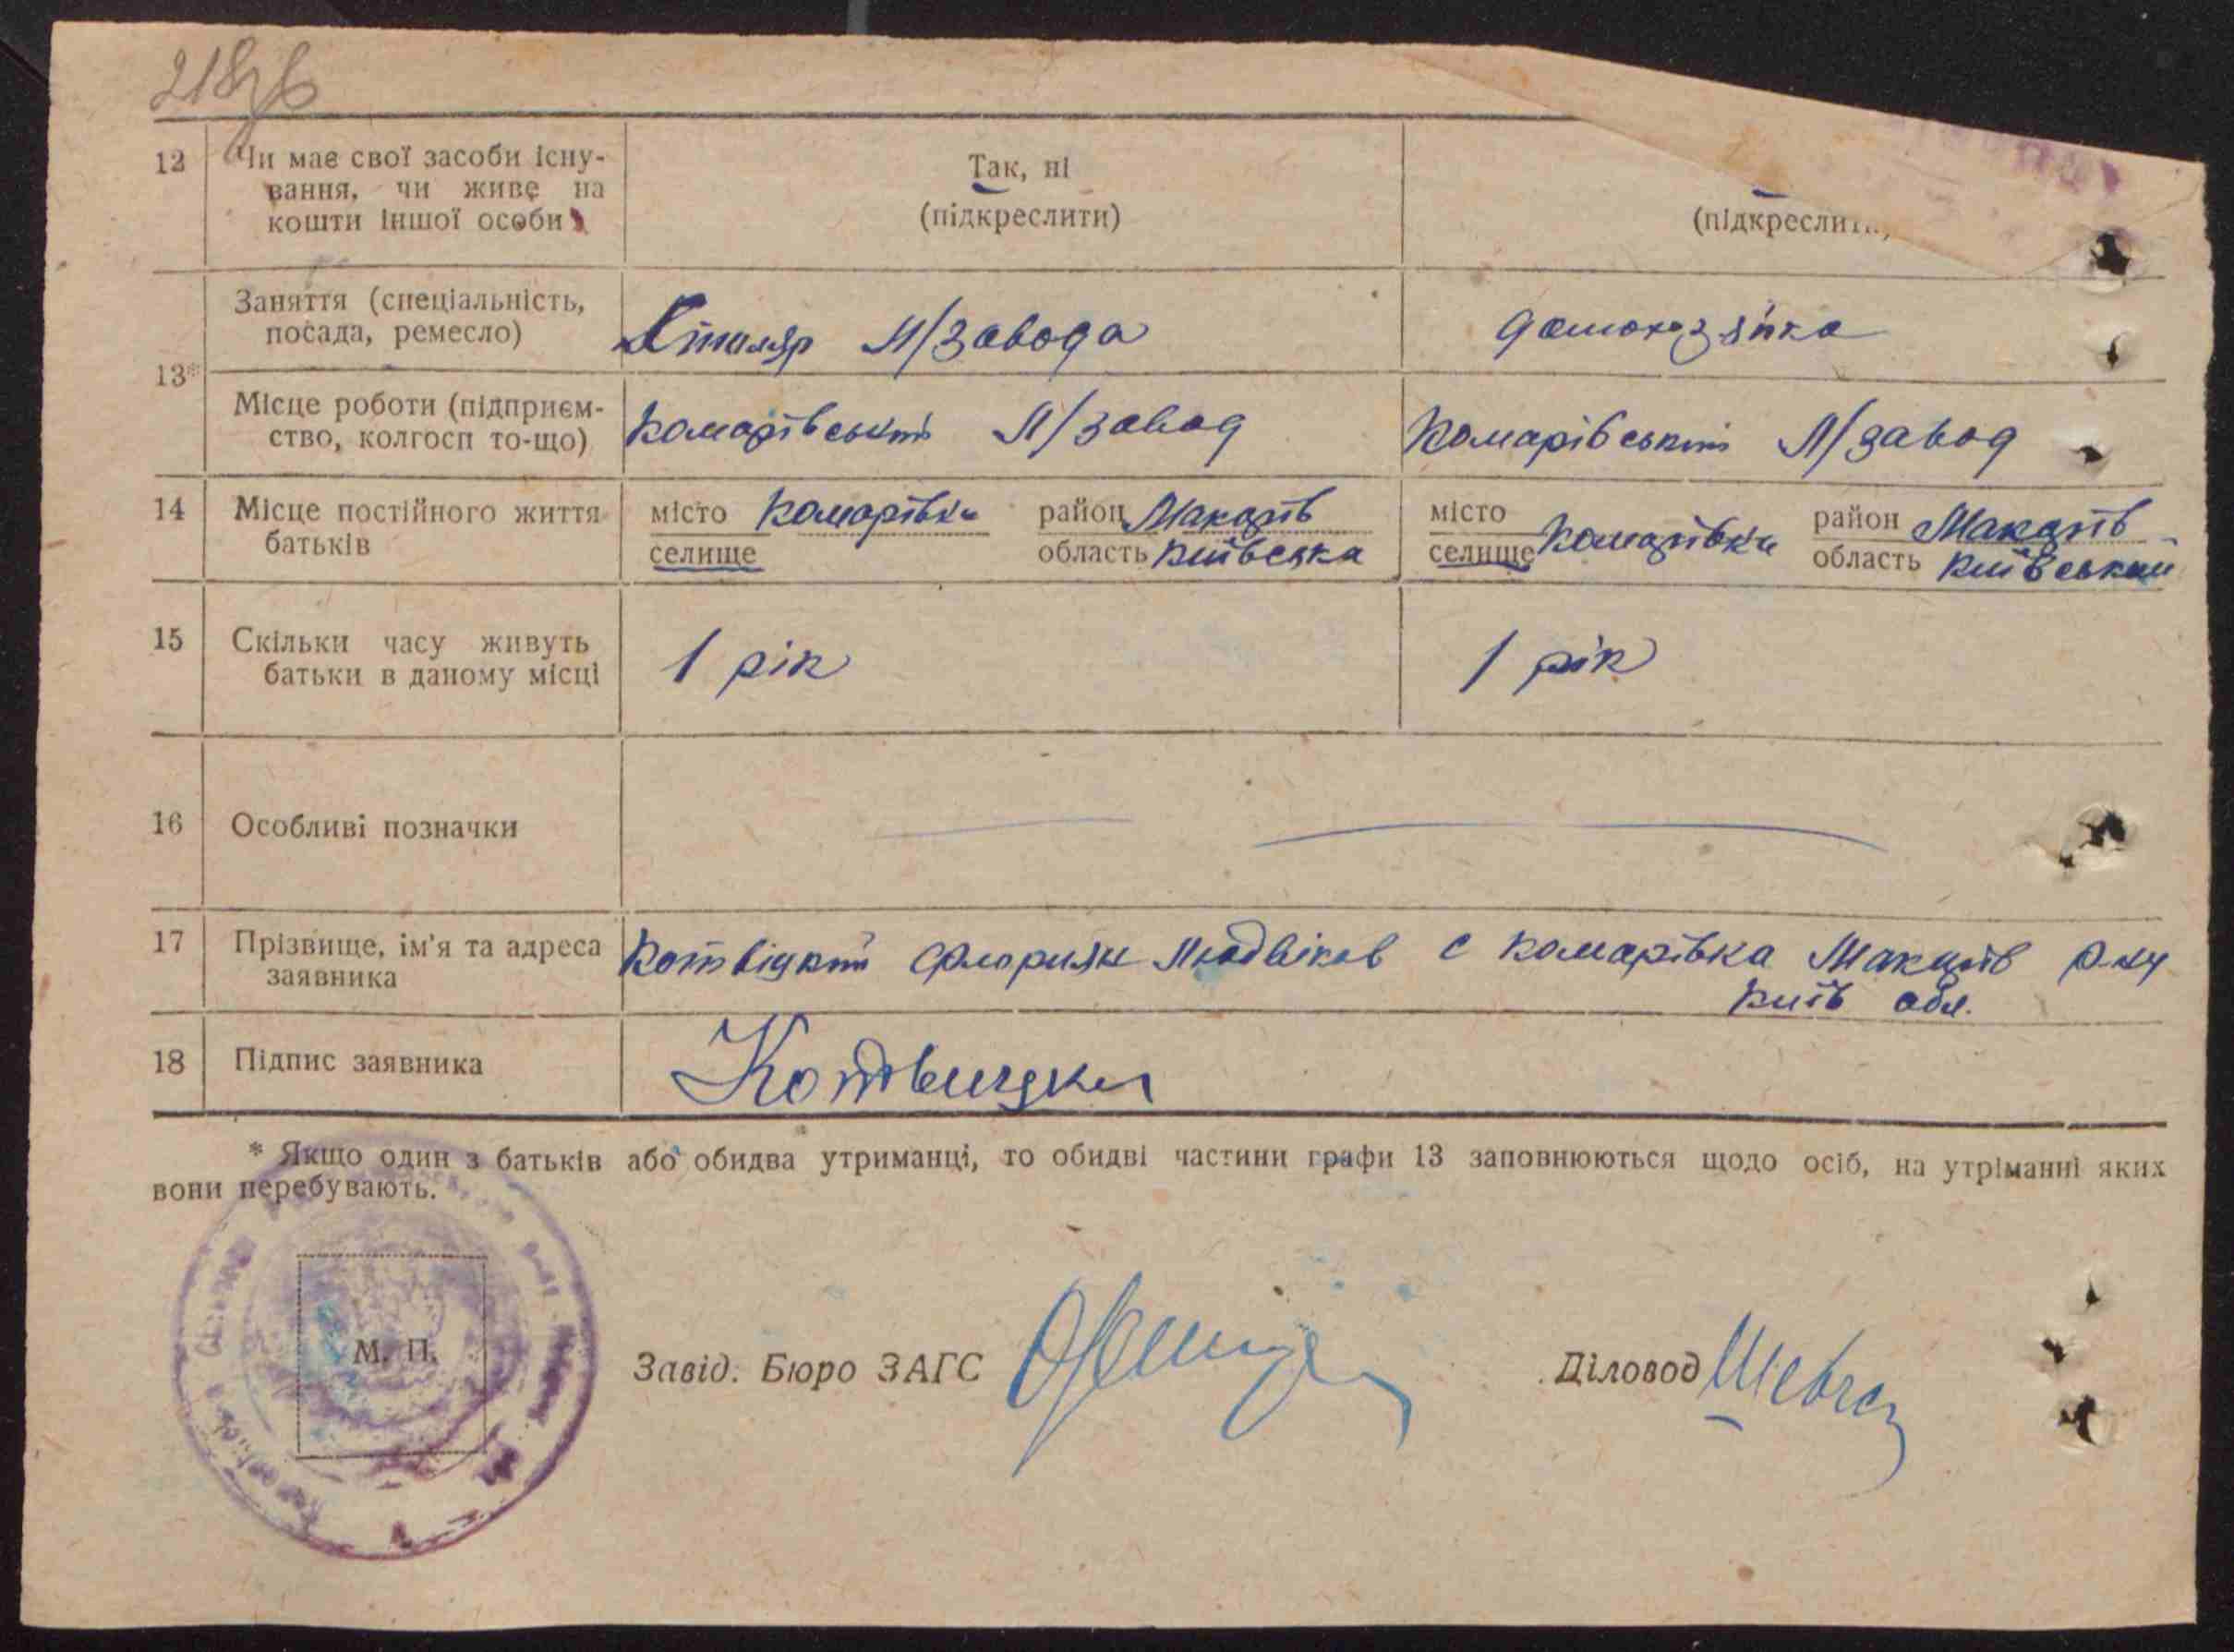 218 зв
12 Чи має свої засоби існу- Так, ні
вання, чи живе на
кошти іншої особи (підкреслити) (підкреслити)
Заняття (спеціальність,
посада, ремесло) Столяр Л/завода домохозяйка
13*
Місце роботи (підприєм-
ство, колгосп то-що) Комарівський Л/завод Комарівський Л/завод
14 Місце постійного життя місто Комарівка район Макарів місто район Макарів
батьків селище область Київська селище Комарівка область Київської
15 Скільки часу живуть 1 рік 1 рік
батьки в даному місці
16 Особливі позначки
17 Прізвище, ім'я та адреса Котвідкий Флориян Людвіков с Комарівка Макарів р-ну
заявника Київ обл.
18 Підпис заявника
* Якщо один з батьків або обидва утриманці, то обидві частини графи 13 заповнюються щодо осіб, на утріманні яких
вони перебувають.
М. П.
Завід. Бюро ЗАГС Діловод